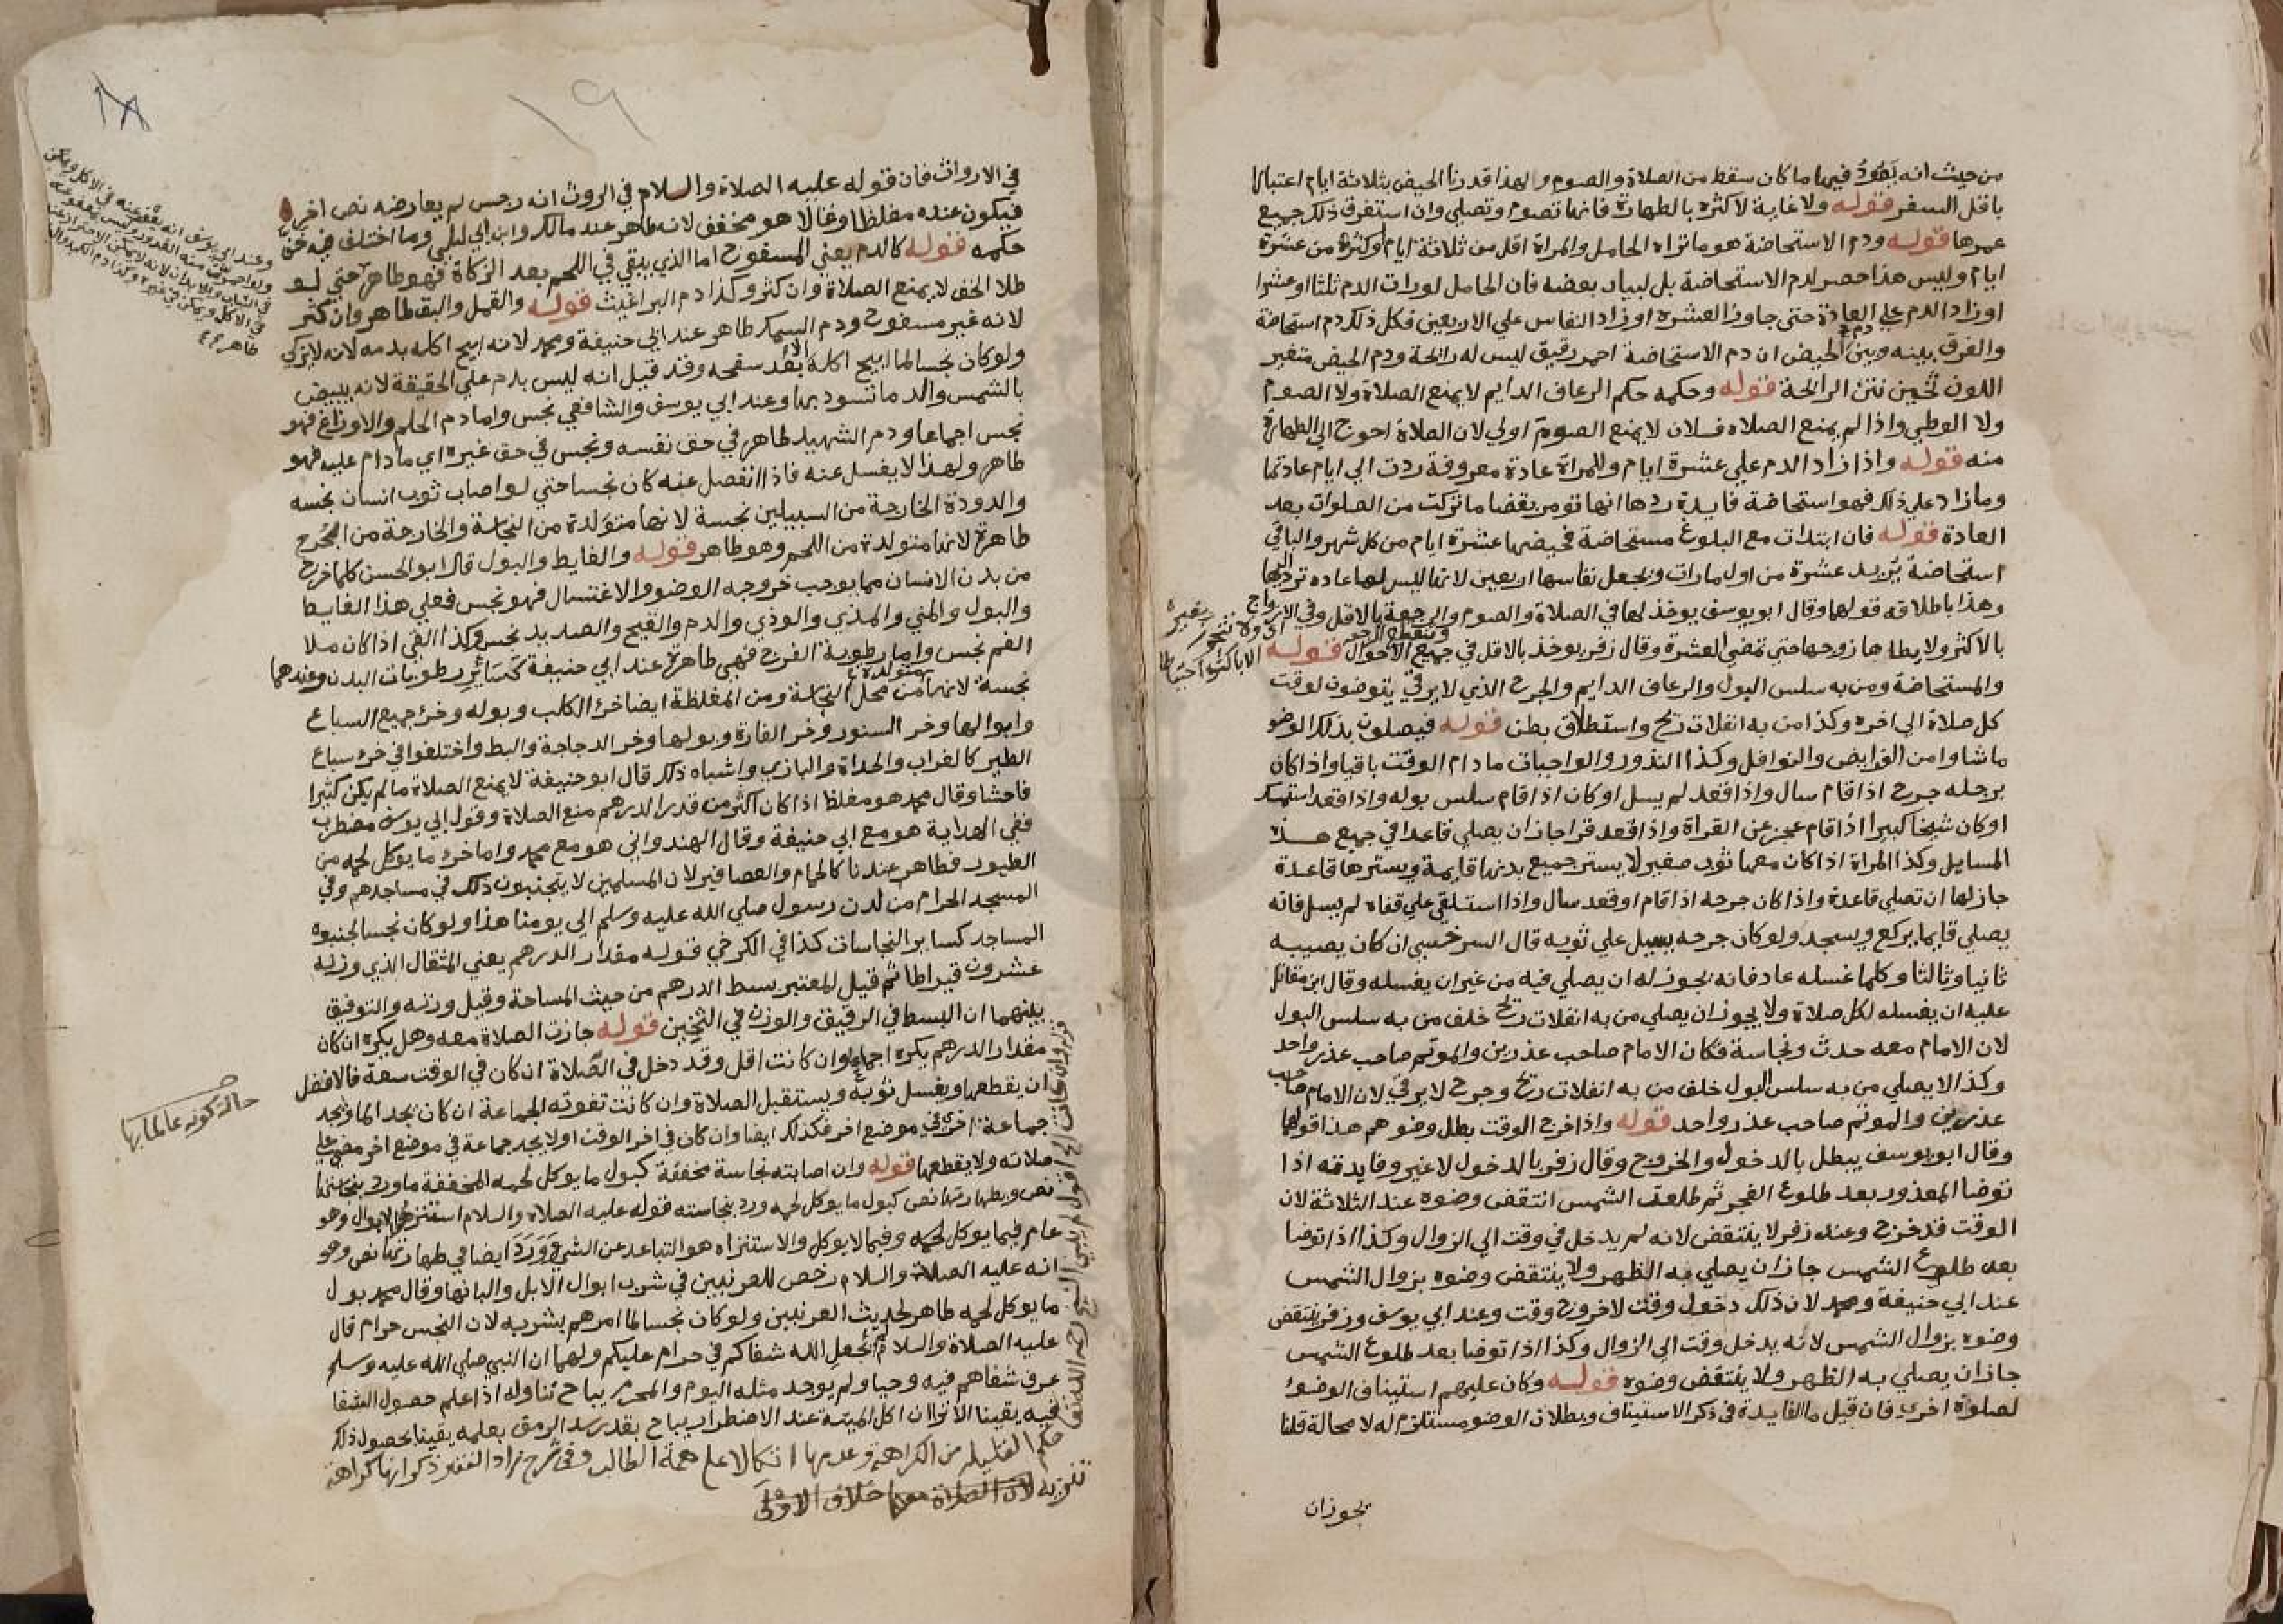 من حيث انه يعود فيها ما كان سقط من الصلاة والصوم ولهذا قدرنا الحيض بثلاثة ايام اعتبارا
باقل السفر قوله ولا غاية لاكثره بالطهارة فانها تصوم وتصلي وان استغرق ذلك جميع
عمرها قوله ودم الاستحاضة هو ما تراه الحامل والمراة اقل من ثلاثة ايام او كثر من عشرة
ايام وليس هذا حصر لدم الاستحاضة بل لبيان بعضه فان الحامل لو رات الدم ثلثا او عشرا
او زاد الدم علي العادة حتي جاوز العشره او زاد النفاس علي الاربعين فكل ذلك دم استحاضة
والفرق بينه وبين دم الحيض ان دم الاستحاضة احمر رقيق ليس له رائحة ودم الحيض متغير
اللون ثخين نتن الرائحة قوله وحكمه حكم الرعاف الدايم لا يمنع الصلاة ولا الصوم
ولا الوطي واذا لم يمنع الصلاه فلان لا يمنع الصوم اولي لان الصلاة احوج الي الطهارة
منه قوله واذا زاد الدم علي عشرة ايام وللمراة عادة معروفة ردت الي ايام عادتها
وما زاد علي ذلك فهو استحاضة فايدة ردها انها تومر بقضا ما تركت من الصلوات بعد
العادة قوله فان ابتدات مع البلوغ مستحاضة فحيضها عشرة ايام من كل شهر والباقي
استحاضة يريد عشرة من اول ما رات ويجعل نفاسها اربعين لانها ليس لها عاده ترد اليها
وهذا باطلاقه قولهما وقال ابو يوسف يوخذ لها في الصلاة والصوم والرجعة بالاقل وفي الازواج
بالاكثر ولا يطاها زوجها حتي تمضي العشرة وقال زفر يوخذ بالاقل في جميع الاحوال قوله
والمستحاضة ومن به سلس البول والرعاف الدايم والجرح الذي لا يرقي يتوضون لوقت
كل صلاة الي اخره وكذا من به انفلات ريح واستطلاق بطن قوله فيصلون بذلك الوضو
ما شاوا من الفرايض والنوافل وكذا النذور والواجبات ما دام الوقت باقيا واذا كان
برجله جرح اذا قام سال واذا قعد لم يسل او كان اذا قام سلس بوله واذا قعد استمسك
او كان شيخا كبيرا اذا قام عجز عن القراة واذا قعد قرا جاز ان يصلي قاعدا في جميع هذه
المسايل وكذا المراة اذا كان معها ثوب صغير لا يستر جميع بدنها قايمة ويسترها قاعدة
جاز لها ان تصلي قاعدة واذا كان جرحه اذا قام او قعد سال واذا استلقي علي قفاه لم يسل فانه
يصلي قايما يركع ويسجد ولو كان جرحه يسيل علي ثوبه قال السرخسي ان كان يصيبه
ثانيا وثالثا وكلما غسله عاد فانه يجوز له ان يصلي فيه من غير ان يغسله وقال ابن مقاتل
عليه ان يغسله لكل صلاة ولا يجوز ان يصلي من به انفلات ريح خلف من به سلس البول
لان الامام معه حدث ونجاسة فكان الامام صاحب عذرين والموتم صاحب عذر واحد
وكذا لا يصلي من به سلس البول خلف من به انفلات ريح وجرح لا يرقي لان الامام صاحب
عذرين والموتم صاحب عذر واحد قوله واذا خرج الوقت بطل وضوهم هذا قولهما
وقال ابو يوسف يبطل بالدخول والخروج وقال زفر بالدخول لا غير وفايدته اذا
توضا المعذور بعد طلوع الفجر ثم طلعت الشمس انتقض وضوه عند الثلاثة لان
الوقت قد خرج وعند زفر لا ينتقض لانه لم يدخل في وقت الي الزوال وكذا اذا توضا
بعد طلوع الشمس جاز ان يصلي به الظهر ولا ينتقض وضوه بزوال الشمس
عند ابي حنيفة ومحمد لان ذلك دخول وقت لا خروج وقت وعند ابي يوسف وزفر ينتقض
وضوه بزوال الشمس لانه يدخل وقت الي الزوال وكذا اذا توضا بعد طلوع الشمس
جاز ان يصلي به الظهر ولا ينتقض وضوه قوله وكان عليهم استيناف الوضوء
لصلوة اخري فان قيل ما الفايدة في ذكر الاستيناف وبطلان الوضو مستلزم له لا محالة قلنا
يجوز ان
١٨
١٩
في الارواث فان قوله عليه الصلاة والسلام في الروث انه رجس لم يعارضه نص اخر
فيكون عنده مغلظا وقالا هو مخفف لانه طاهر عند مالك وابن ابي ليلي وما اختلف فيه خف
حكمه قوله كالدم يعني المسفوح اما الذي يبقي في اللحم بعد الزكاة فهو طاهر حتي لو
طلا الخف لا يمنع الصلاة وان كثر وكذا دم البراغيث قوله والقمل والبق طاهر وان كثر
لانه غير مسفوح ودم السمك طاهر عند ابي حنيفة ومحمد لانه ابيح اكله بدمه لانه لا يزكي
ولو كان نجسا لما ابيح اكله الا بعد سفحه وقد قيل انه ليس بدم علي الحقيقة لانه يبيض
بالشمس والدما تسود بها وعند ابي يوسف والشافعي نجس واما دم الحلم والاوزاغ فهو
نجس اجماعا ودم الشهيد طاهر في حق نفسه ونجس في حق غيره اي ما دام عليه فهو
طاهر ولهذا لا يغسل عنه فاذا انفصل عنه كان نجسا حتي لو اصاب ثوب انسان نجسه
والدودة الخارجة من السبيلين نجسة لانها متولدة من النجاسة والخارجة من الجرح
طاهرة لانها متولدة من اللحم وهو طاهر قوله والغايط والبول قال ابو الحسن كلما خرج
من بدن الانسان مما يوجب خروجه الوضو والاغتسال فهو نجس فعلي هذا الغايط
والبول والمني والمذي والودي والدم والقيح والصديد نجس وكذا القي اذا كان ملا
الفم نجس واما رطوبة الفرج فهي طاهرة عند ابي حنيفة كسائر رطوبات البدن وعندهما
نجسة لانها متولدة من محل النجاسة ومن المغلظة ايضا خرؤ الكلب وبوله وخرؤ جميع السباع
وابوالها وخر السنور وخر الفارة وبولها وخر الدجاجة والبط واختلفوا في خرء سباع
الطير كالغراب والحداة والبازي واشباه ذلك قال ابو حنيفة لا يمنع الصلاة ما لم يكن كثيرا
فاحشا وقال محمد هو مغلظ اذا كان اكثر من قدر الدرهم منع الصلاة وقول ابي يوسف مضطرب
ففي الهداية هو مع ابي حنيفة وقال الهندواني هو مع محمد واما خرء ما يوكل لحمه من
الطيور فطاهر عندنا كالحمام والعصافير لان المسلمين لا يتجنبون ذلك في مساجدهم وفي
المسجد الحرام من لدن رسول صلي الله عليه وسلم الي يومنا هذا ولو كان نجسا لجنبوه
المساجد كساير النجاسات كذا في الكرخي قوله مقدار الدرهم يعني المثقال الذي وزنه
عشرون قيراطا ثم قيل المعتبر بسط الدرهم من حيث المساحة وقيل وزنه والتوفيق
بينهما ان البسط في الرقيق والوزن في الثخين قوله جازت الصلاة معه وهل يكره ان كان
مقدار الدرهم يكره اجماعا وان كانت اقل وقد دخل في الصلاة ان كان في الوقت سعة فالافضل
ان يقطعها ويغسل ثوبه ويستقبل الصلاة وان كانت تفوته الجماعة ان كان يجد الما ويجد
جماعة اخري في موضع اخر فكذلك ايضا وان كان في اخر الوقت او لا يجد جماعة في موضع اخر مضي علي
صلاته ولا يقطعها قوله وان اصابته نجاسة مخففة كبول ما يوكل لحمه المخففة ما ورد بنجاستها
نص وبطهارتها نص كبول ما يوكل لحمه ورد بنجاسته قوله عليه الصلاه والسلام استنزهوا من الابوال وهو
عام فيما يوكل لحمه وفيما لا يوكل والاستنزاه هو التباعد عن الشي وورد ايضا في طهارتها نص وهو
انه عليه الصلاة والسلام رخص للعرنيين في شرب ابوال الابل والبانها وقال محمد بول
ما يوكل لحمه طاهر لحديث العرنيين ولو كان نجسا لما امرهم بشربه لان النجس حرام قال
عليه الصلاة والسلام لم يجعل الله شفاكم في حرام عليكم ولهما ان النبي صلي الله عليه وسلم
عرف شفاهم فيه وحيا ولم يوجد مثله اليوم والمحرم يباح تناوله اذا علم حصول الشفا
فيه يقينا الا تري ان اكل الميتة عند الاضطرار يباح بقدر سد الرمق بعلمه يقينا بحصول ذلك
حكم القليلة من الكراهة وعدمها اتكالا علي همة الطالب وفي شرح زاد الفقير ذكر انها كراهة
تنزيه لان الصلاة خلاف الاولى
حالة كونه عالما بها